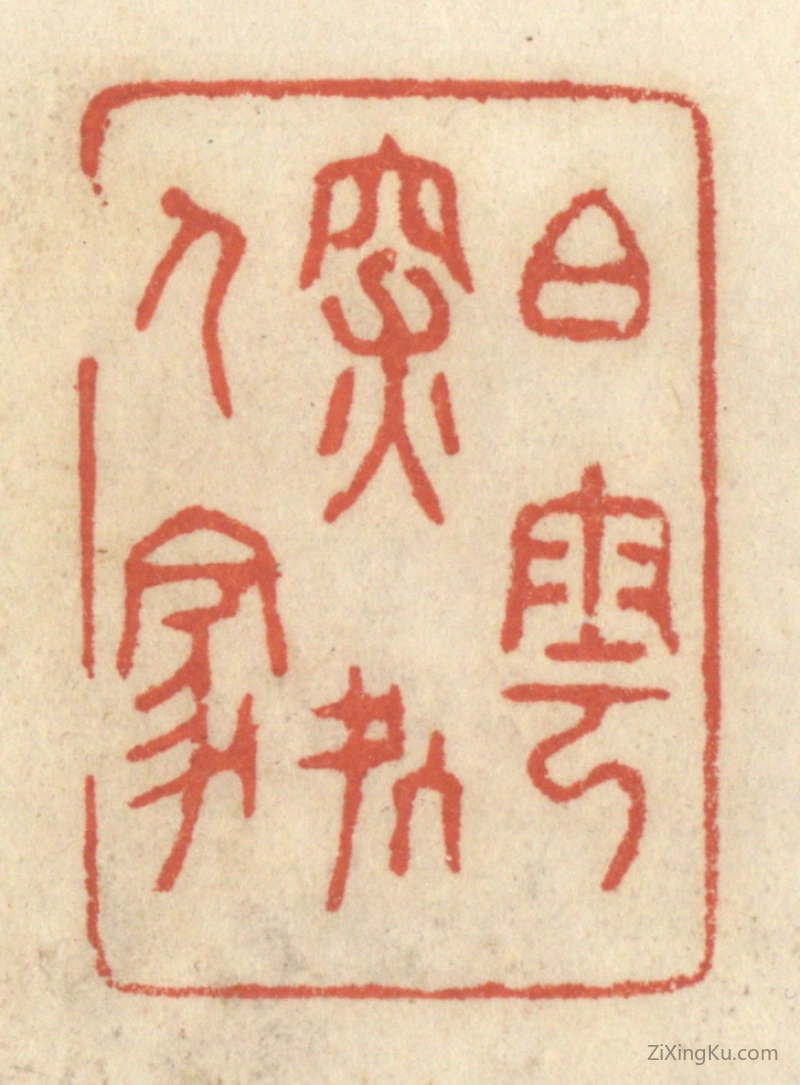 白雲
深處
人家
ZiXingKu.com